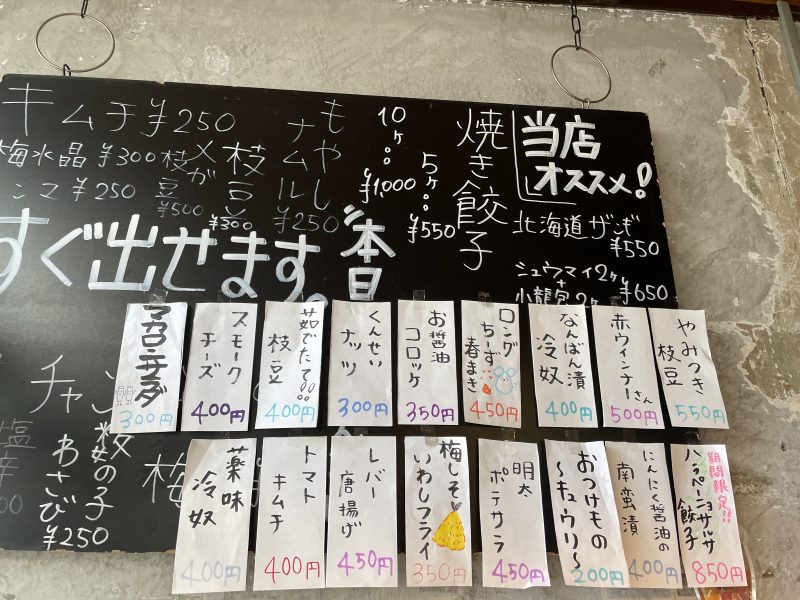 当店
オススメ!
北海道ザンギ
¥550
シュウマイ2ヶ
+
小龍包2ヶ
¥650
焼き餃子
5ヶ
¥550
10ヶ
¥1,000
もやし
ナムル
¥250
枝豆
¥300
枝豆
¥500
キムチ¥250
梅水晶 ¥300
ンマ ¥250
本日
すぐ出せます。
やみつき
枝豆
550円
赤ウィンナーさん
500円
なんばん漬
冷奴
400円
ロング
ちーず
春まき
450円
お醤油
コロッケ
350円
くんせい
ナッツ
300円
茹でたて
枝豆
400円
スモーク
チーズ
400円
マカロニサラダ
300円
期間限定!!
ハラペーニョサルサ
餃子
850円
にんにく醤油の
南蛮漬
400円
おつけもの
～キュウリ～
200円
明太
ポテサラ
450円
梅しそ
いわしフライ
350円
レバー
唐揚げ
450円
トマト
キムチ
400円
薬味
冷奴
400円
チャン
数の子
わさび
¥250
梅
塩